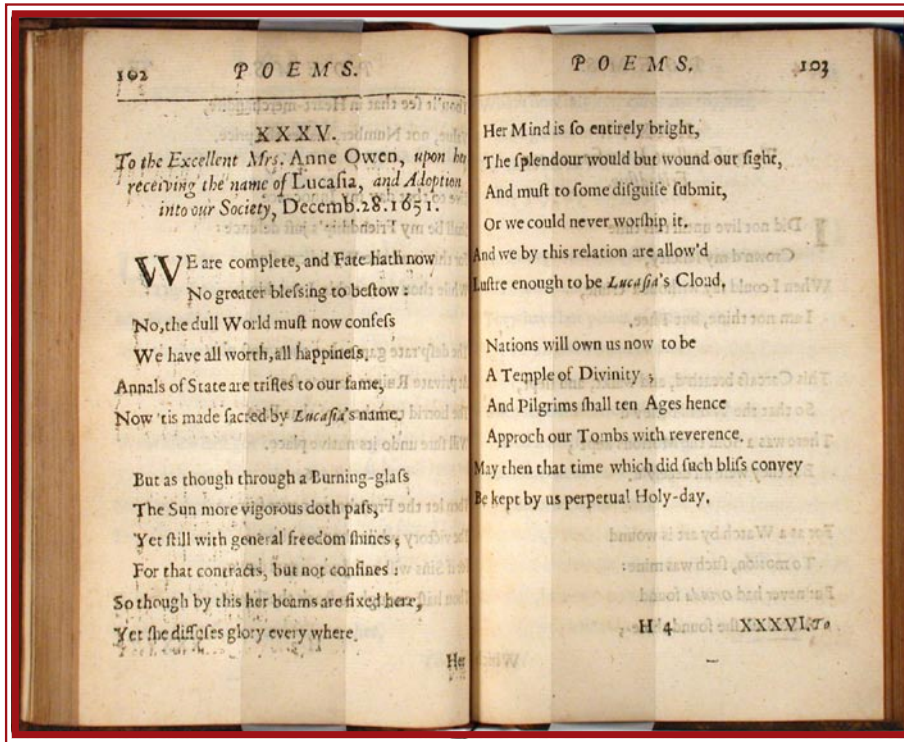 102 POEMS.
XXXV.
To the Excellent Mrs. Anne Owen, upon her
receiving the name of Lucaſia, and Adoption
into our Society, Decemb.28.1651.
WE are complete, and Fate hath now
No greater bleſſing to beſtow:
No, the dull World muſt now confeſs
We have all worth, all happineſs.
Annals of State are trifles to our fame,
Now 'tis made ſacred by Lucaſia's name.
But as though through a Burning-glaſs
The Sun more vigorous doth paſs,
Yet ſtill with general freedom ſhines;
For that contracts, but not confines:
So though by this her beams are fixed here,
Yet ſhe diffuſes glory every where.
Her
POEMS. 103
Her Mind is ſo entirely bright,
The ſplendour would but wound our ſight,
And muſt to ſome diſguiſe ſubmit,
Or we could never worſhip it.
And we by this relation are allow'd
Luſtre enough to be Lucaſia's Cloud.
Nations will own us now to be
A Temple of Divinity;
And Pilgrims ſhall ten Ages hence
Approch our Tombs with reverence.
May then that time which did ſuch bliſs convey
Be kept by us perpetual Holy-day.
H 4 XXXVI. To